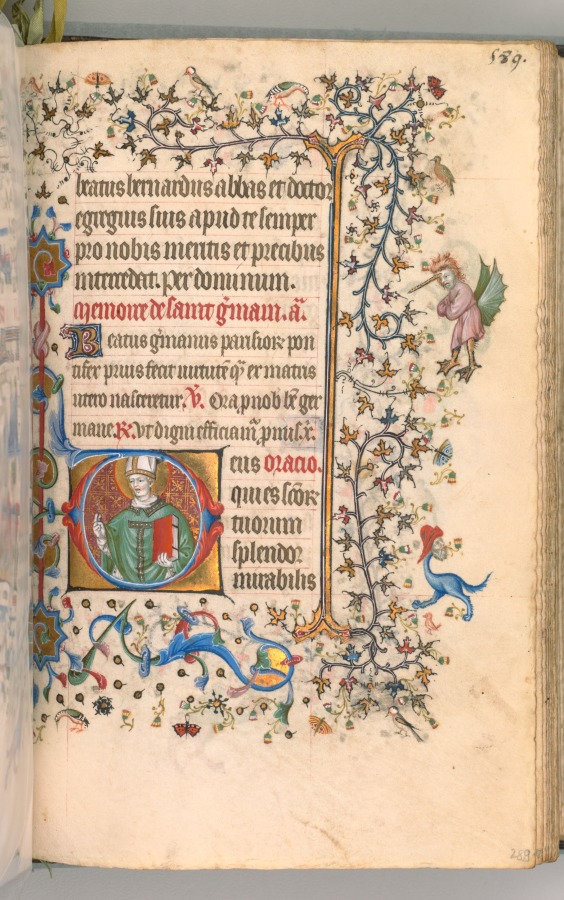 589.
beatus bernardus abbas et doctor
egregius suus apud te semper
pro nobis meritis et precibus
intercedat. Per dominum.
Memoire de saint g̃main. añ.
Beatus g̃manus parisioꝝ pon
tifex prius fecit uirtutẽ q̃ ex matris
utero nasceretur. ℣. Ora p nob̃ bẽ ger
mane. ℟. Vt digni efficiam̃ p̃mis. x̃.
eus oracio.
qui es sc̃oꝝ
tuorum
splendor
mirabilis
289